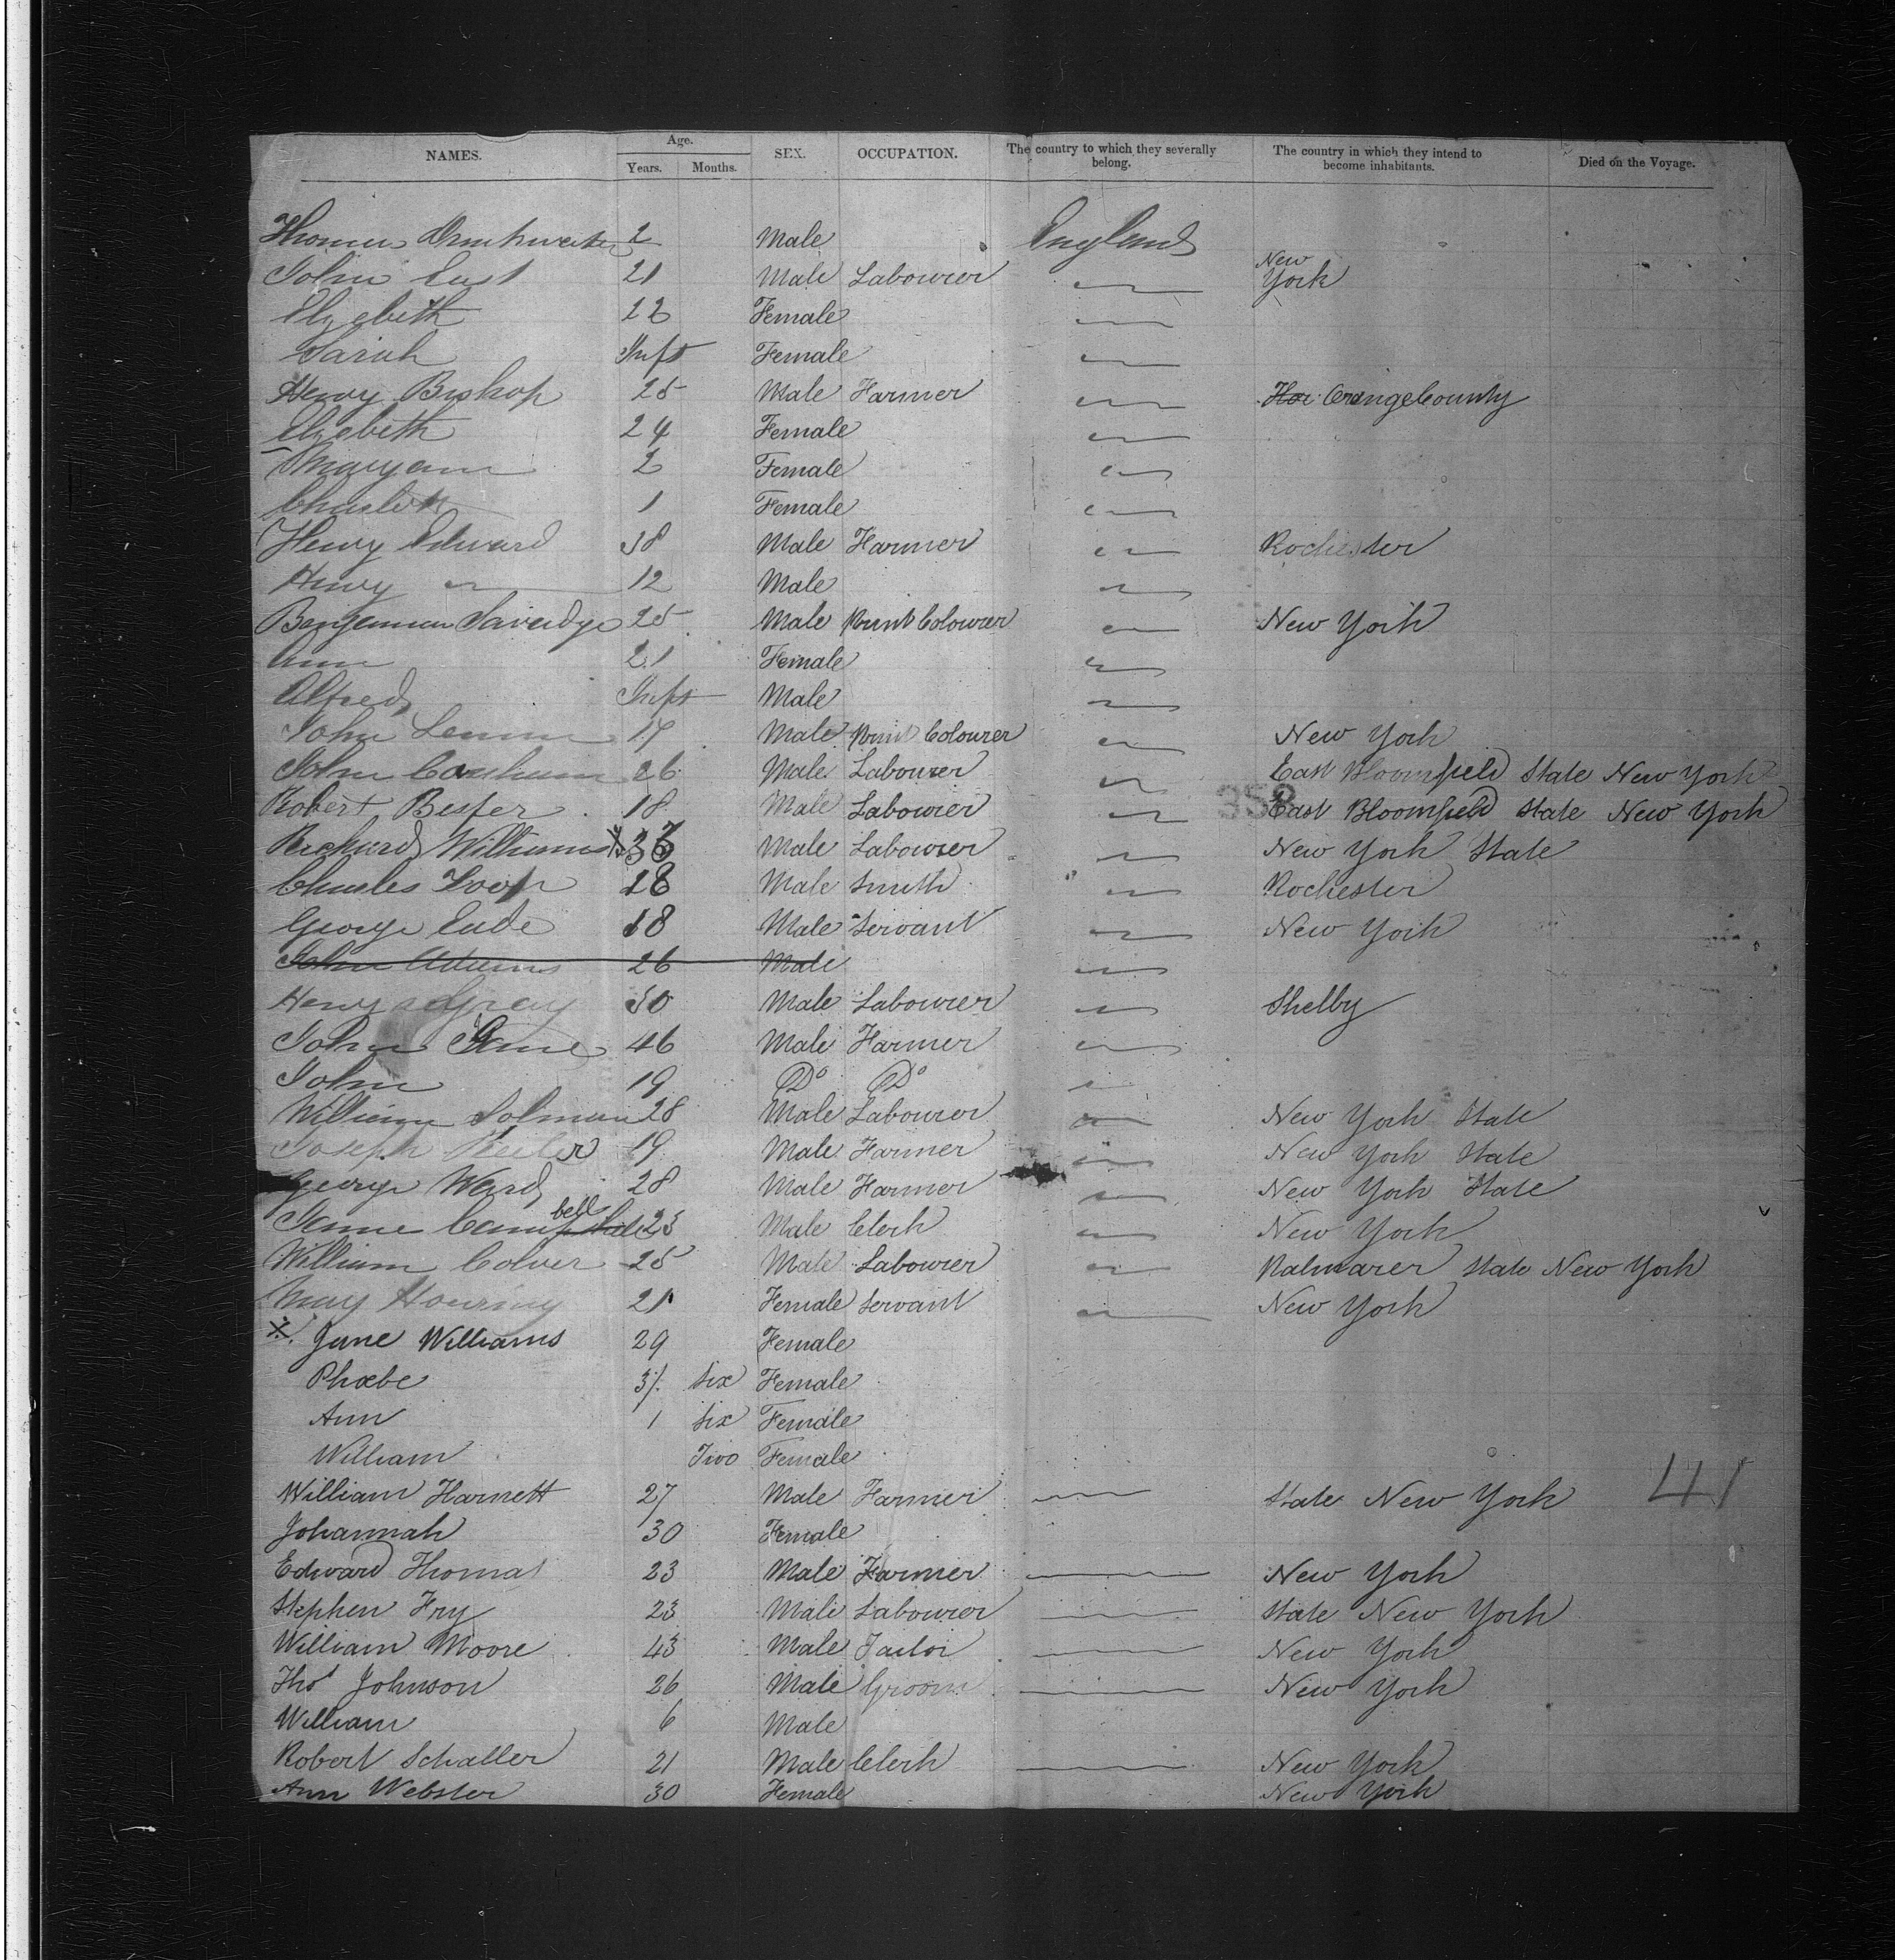 NAMES. Age. Years. Months. SEX. OCCUPATION. The country to which they severally belong. The country in which they intend to become inhabitants. Died on the Voyage.
Thomas Drinkwater 2 Male England
John East 21 Male Labourer New York
Elizabeth 22 Female
Sarah Inft Female
Henry Bishop 25 Male Farmer Orange County
Elizabeth 24 Female
Maryann 2 Female
1 Female
Henry Edward 38 Male Farmer Rochester
Henry 12 Male
Benjamin Saveidge 25 Male Print Colourer New York
Ann 21 Female
Alfred Inft Male
John 17 Male Print Colourer New York
John 26 Male Labourer East Bloomfield State New York
Robert Besfer 18 Male Labourer 358 East Bloomfield State New York
Richard Williams 36 Male Labourer New York State
Charles Loop 28 Male Smith Rochester
George Eade 18 Male Servant New York
John Adams 26 Male
Henry Gray 30 Male Labourer Shelby
John 46 Male Farmer
John 19 Do Do
William Solman 28 Male Labourer New York State
Joseph 19 Male Farmer New York State
George Ward 28 Male Farmer New York State
Campbell 23 Male Clerk New York
William Colver 25 Male Labourer Palmarer State New York
Mary 21 Female Servant New York
Jane Williams 29 Female
Phœbe 3 Six Female
Ann 1 Six Female
William Two Female
William Harnett 27 Male Farmer State New York 41
Johannah 30 Female
Edward Thomas 23 Male Farmer New York
Stephen Fry 23 Male Labourer State New York
William Moore 43 Male Tailor New York
Thos Johnson 26 Male Groom New York
William 6 Male
Robert Schaller 21 Male Clerk New York
Ann Webster 30 Female New York